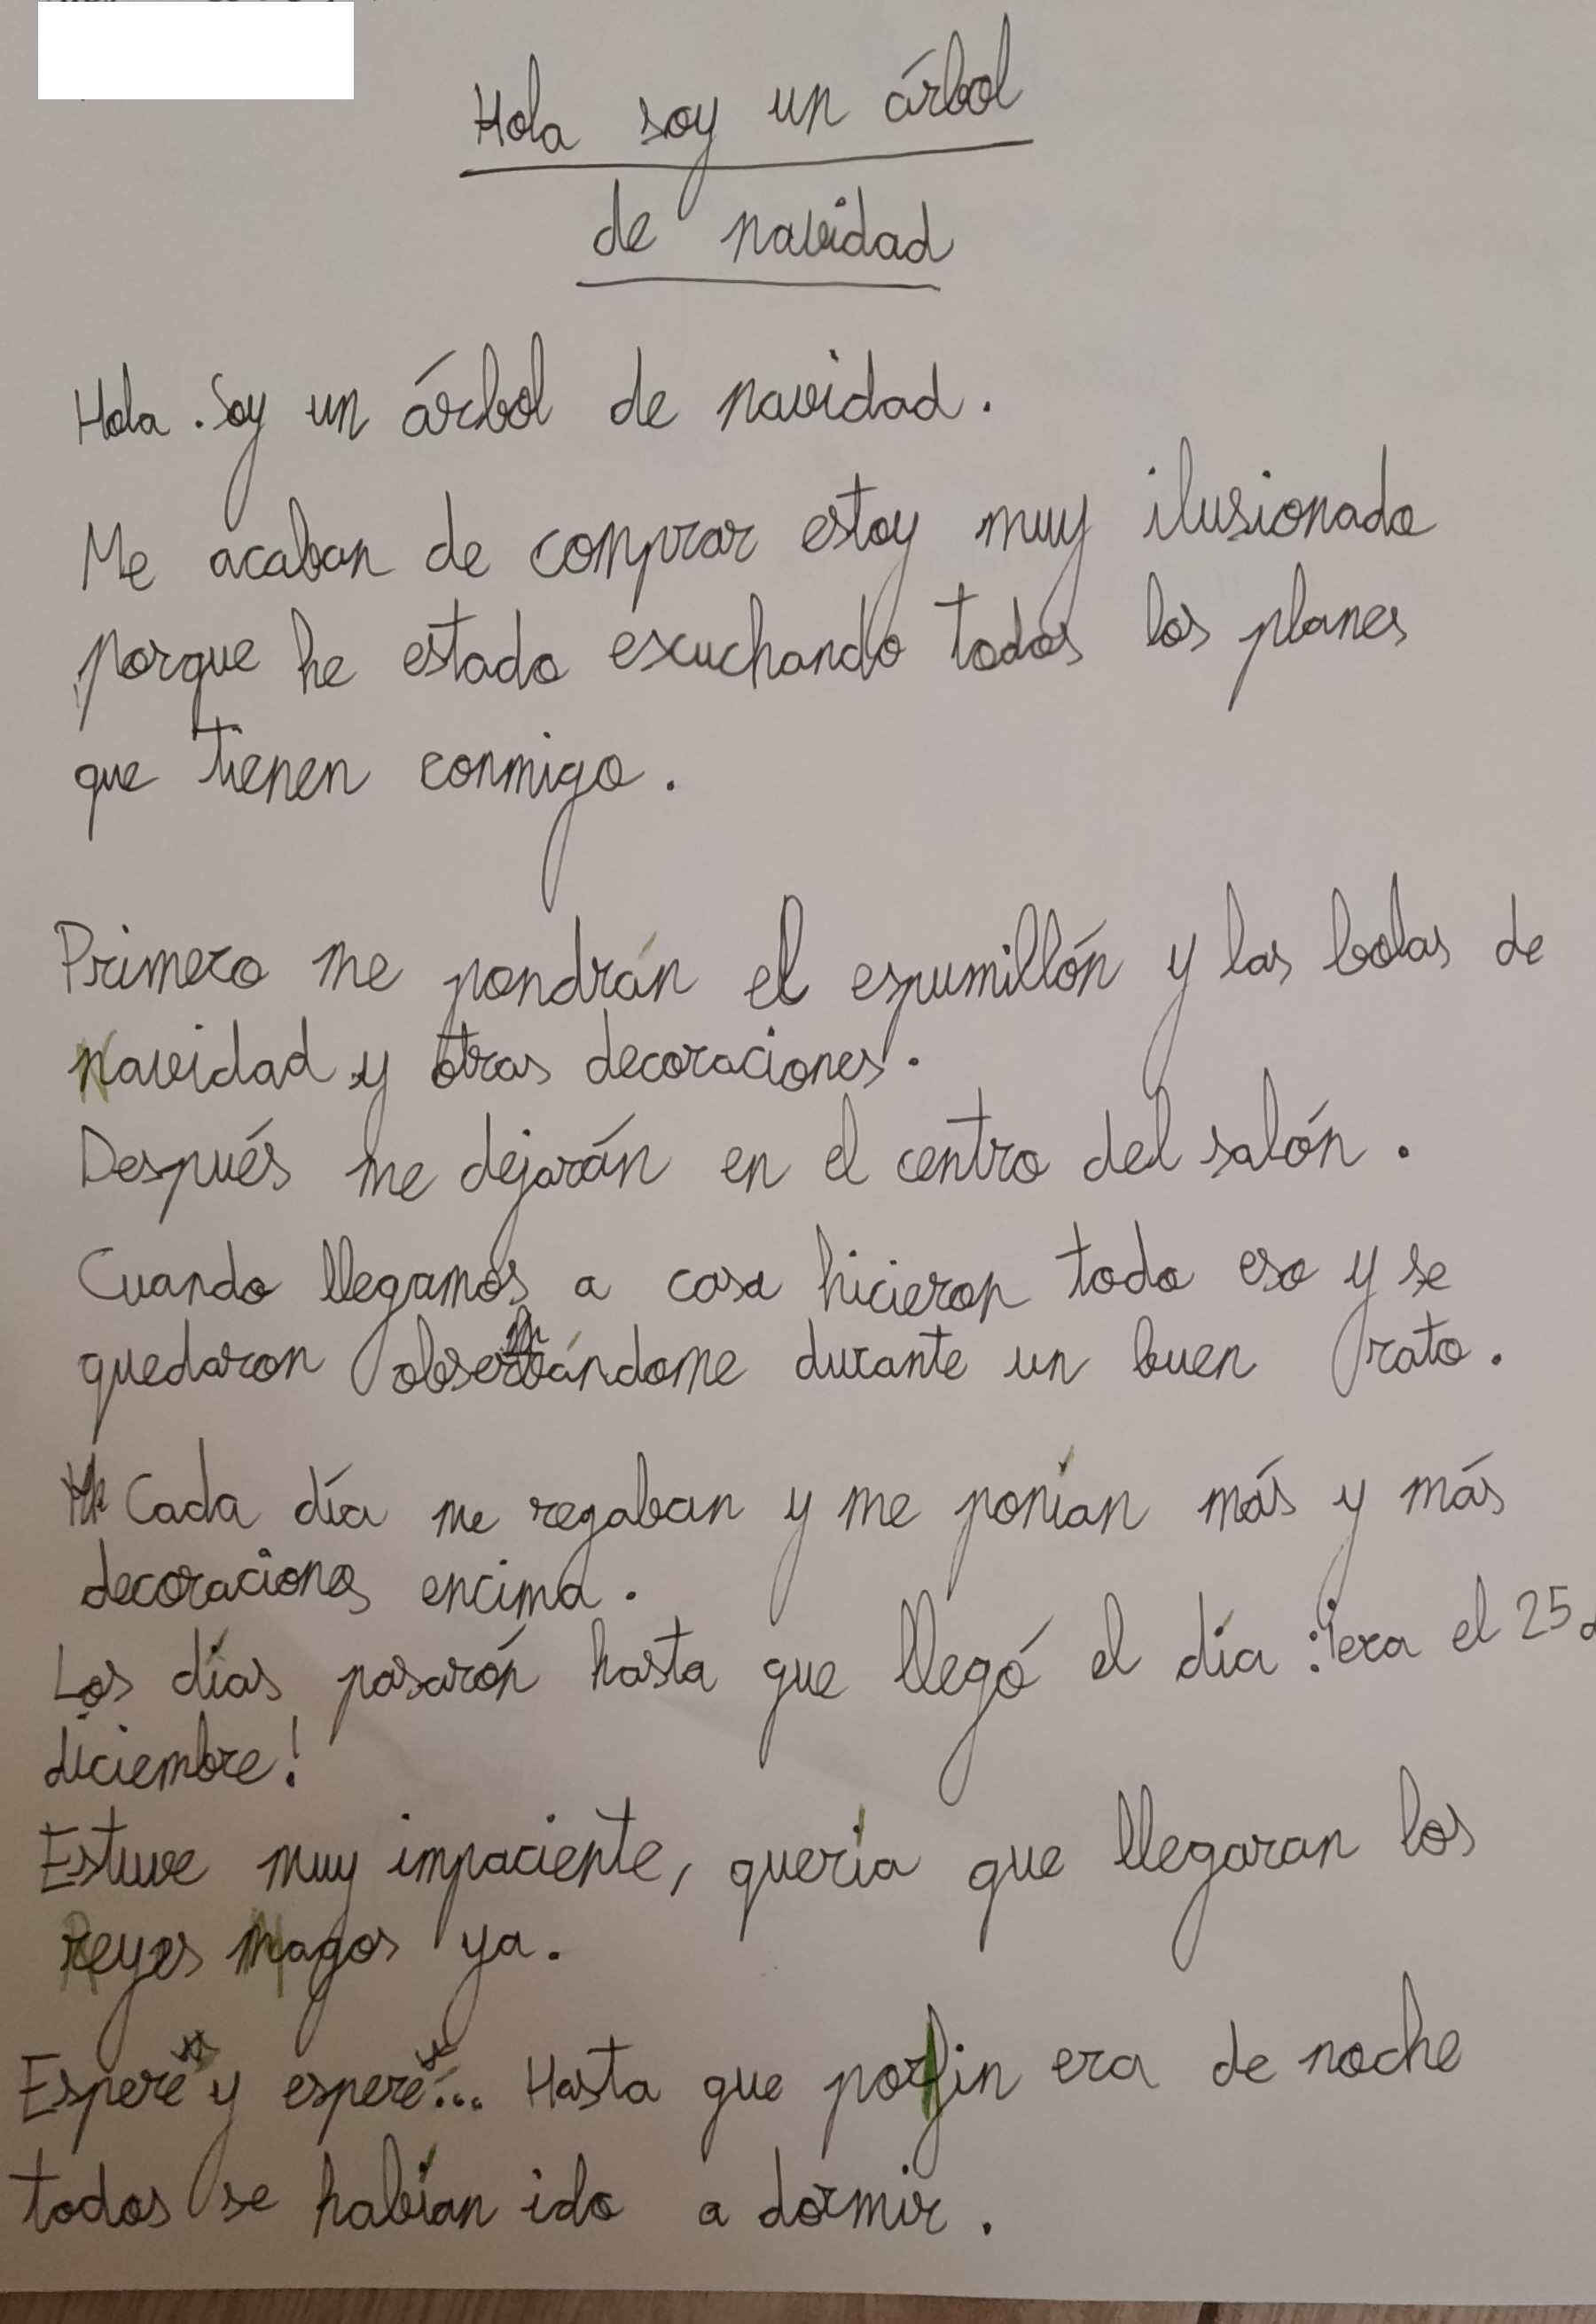 Hola soy un árbol
de navidad
Hola. Soy un árbol de navidad.
Me acaban de comprar estoy muy ilusionado
porque he estado escuchando todos los planes
que tienen conmigo.
Primero me pondrán el espumillón y las bolas de
Navidad y otras decoraciones.
Después me dejarán en el centro del salón.
Cuando llegamos a casa hicieron todo eso y se
quedaron observándome durante un buen rato.
Cada día me regaban y me ponían más y más
decoraciones encima.
Los días pasarón hasta que llegó el día: ¡era el 25 d
diciembre!
Estuve muy impaciente, quería que llegaran los
Reyes Magos ya.
Esperé y esperé... Hasta que por fin era de noche
todos se habían ido a dormir.